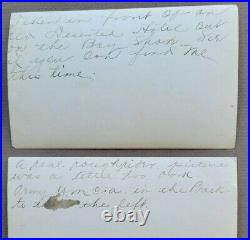 Taken in front of an
old Deserted Hotel out
on the Bay Shore. See
if you can find me
this time.
a real roughrider picture
was a little too dark
Army Y.M.C.A. in the Back
to the left